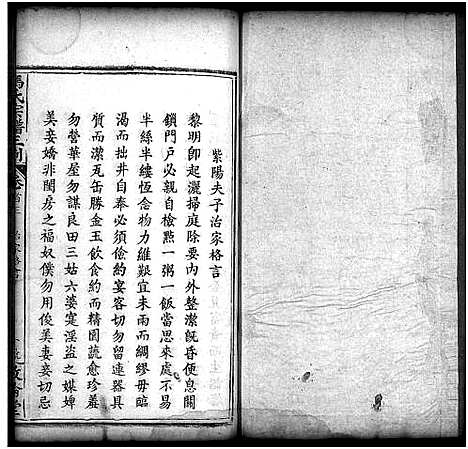 紫陽夫子治家格言
黎明卽起灑掃庭除要內外整潔旣昏便息關
鎖門戶必親自檢㸃一粥一飯當思來處不易
半絲半縷恆念物力維艱宜未雨而綢繆毋臨
渴而掘井自奉必須儉約宴客切勿留連器具
質而潔瓦缶勝金玉飲食約而精園蔬愈珍羞
勿營華屋勿謀良田三姑六婆寔淫盜之媒婢
美妾嬌非閨房之福奴僕勿用俊美妻妾切忌
馮氏宗譜三刊
卷首三
治家格言